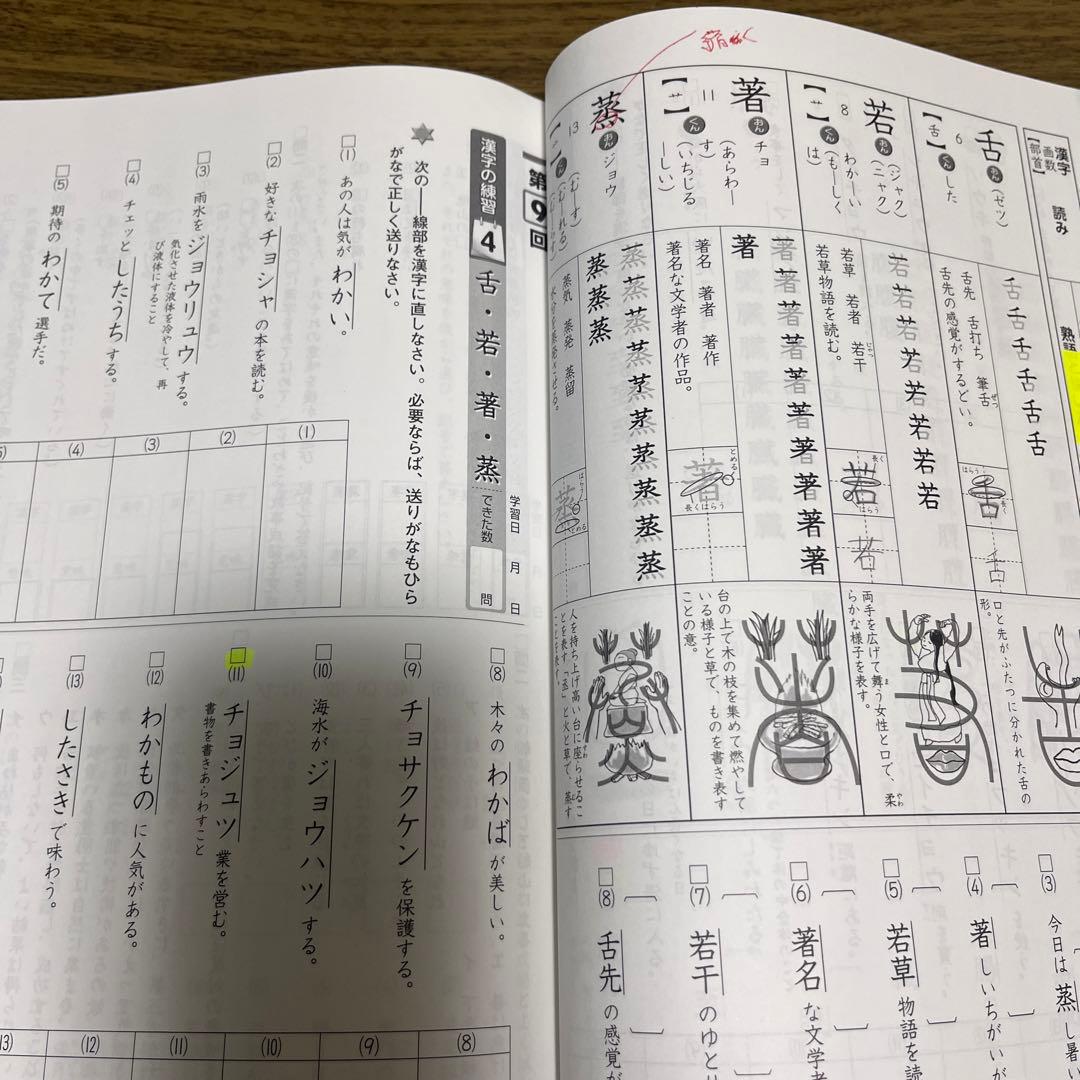 漢字
画数
【部首】
読み
舌
6
【舌】
おん
(ゼツ)
くん
した
舌舌舌舌舌
舌先 舌打ち 筆舌
ぜつ
舌先の感覚がするどい。
はらう
口と先がふたつに分かれた舌の
形。
若
8
【艹】
おん
(ジャク)
(ニャク)
くん
わか―い
(も―しく
は)
若若若若若若若若
若草 若者 若干
じゃっ
若草物語を読む。
長く
はらう
両手を広げて舞う女性と口で、柔
らかな様子を表す。
著
11
【艹】
おん
チョ
くん
(あらわ―
す)
(いちじる
―しい)
著著著著著著著著著著
著
著名 著者 著作
著名な文学者の作品。
とめる
長くはらう
台の上で木の枝を集めて燃やして
いる様子と草で、ものを書き表す
ことの意。
蒸
13
おん
ジョウ
くん
(む―す)
(む―れる)
蒸蒸蒸
蒸気 蒸発 蒸留
はらう
とめる
人を持ち上げ高い台に座らせるこ
とを表す「丞」と火と草で、蒸す
ことを表す。
(3) 今日は蒸し暑い
(4) 著しいちがいが
(5) 若草物語を読
(6) 著名な文学者
(7) 若干のゆと
(8) 舌先の感覚が
第9回
漢字の練習 4 舌・若・著・蒸
学習日 月 日
できた数 問
次の――線部を漢字に直しなさい。必要ならば、送りがなもひら
がなで正しく送りなさい。
(1) あの人は気がわかい。
(2) 好きなチョシャの本を読む。
(3) 雨水をジョウリュウする。
気化させた液体を冷やして、再
び液体にすること
(4) チェッとしたうちする。
(5) 期待のわかて選手だ。
(1)
(2)
(3)
(4)
(8) 木々のわかばが美しい。
(9) チョサクケンを保護する。
(10) 海水がジョウハツする。
(11) チョジュツ業を営む。
書物を書きあらわすこと
(12) わかものに人気がある。
(13) したさきで味わう。
(8)
(9)
(10)
(11)
(12)
(13)